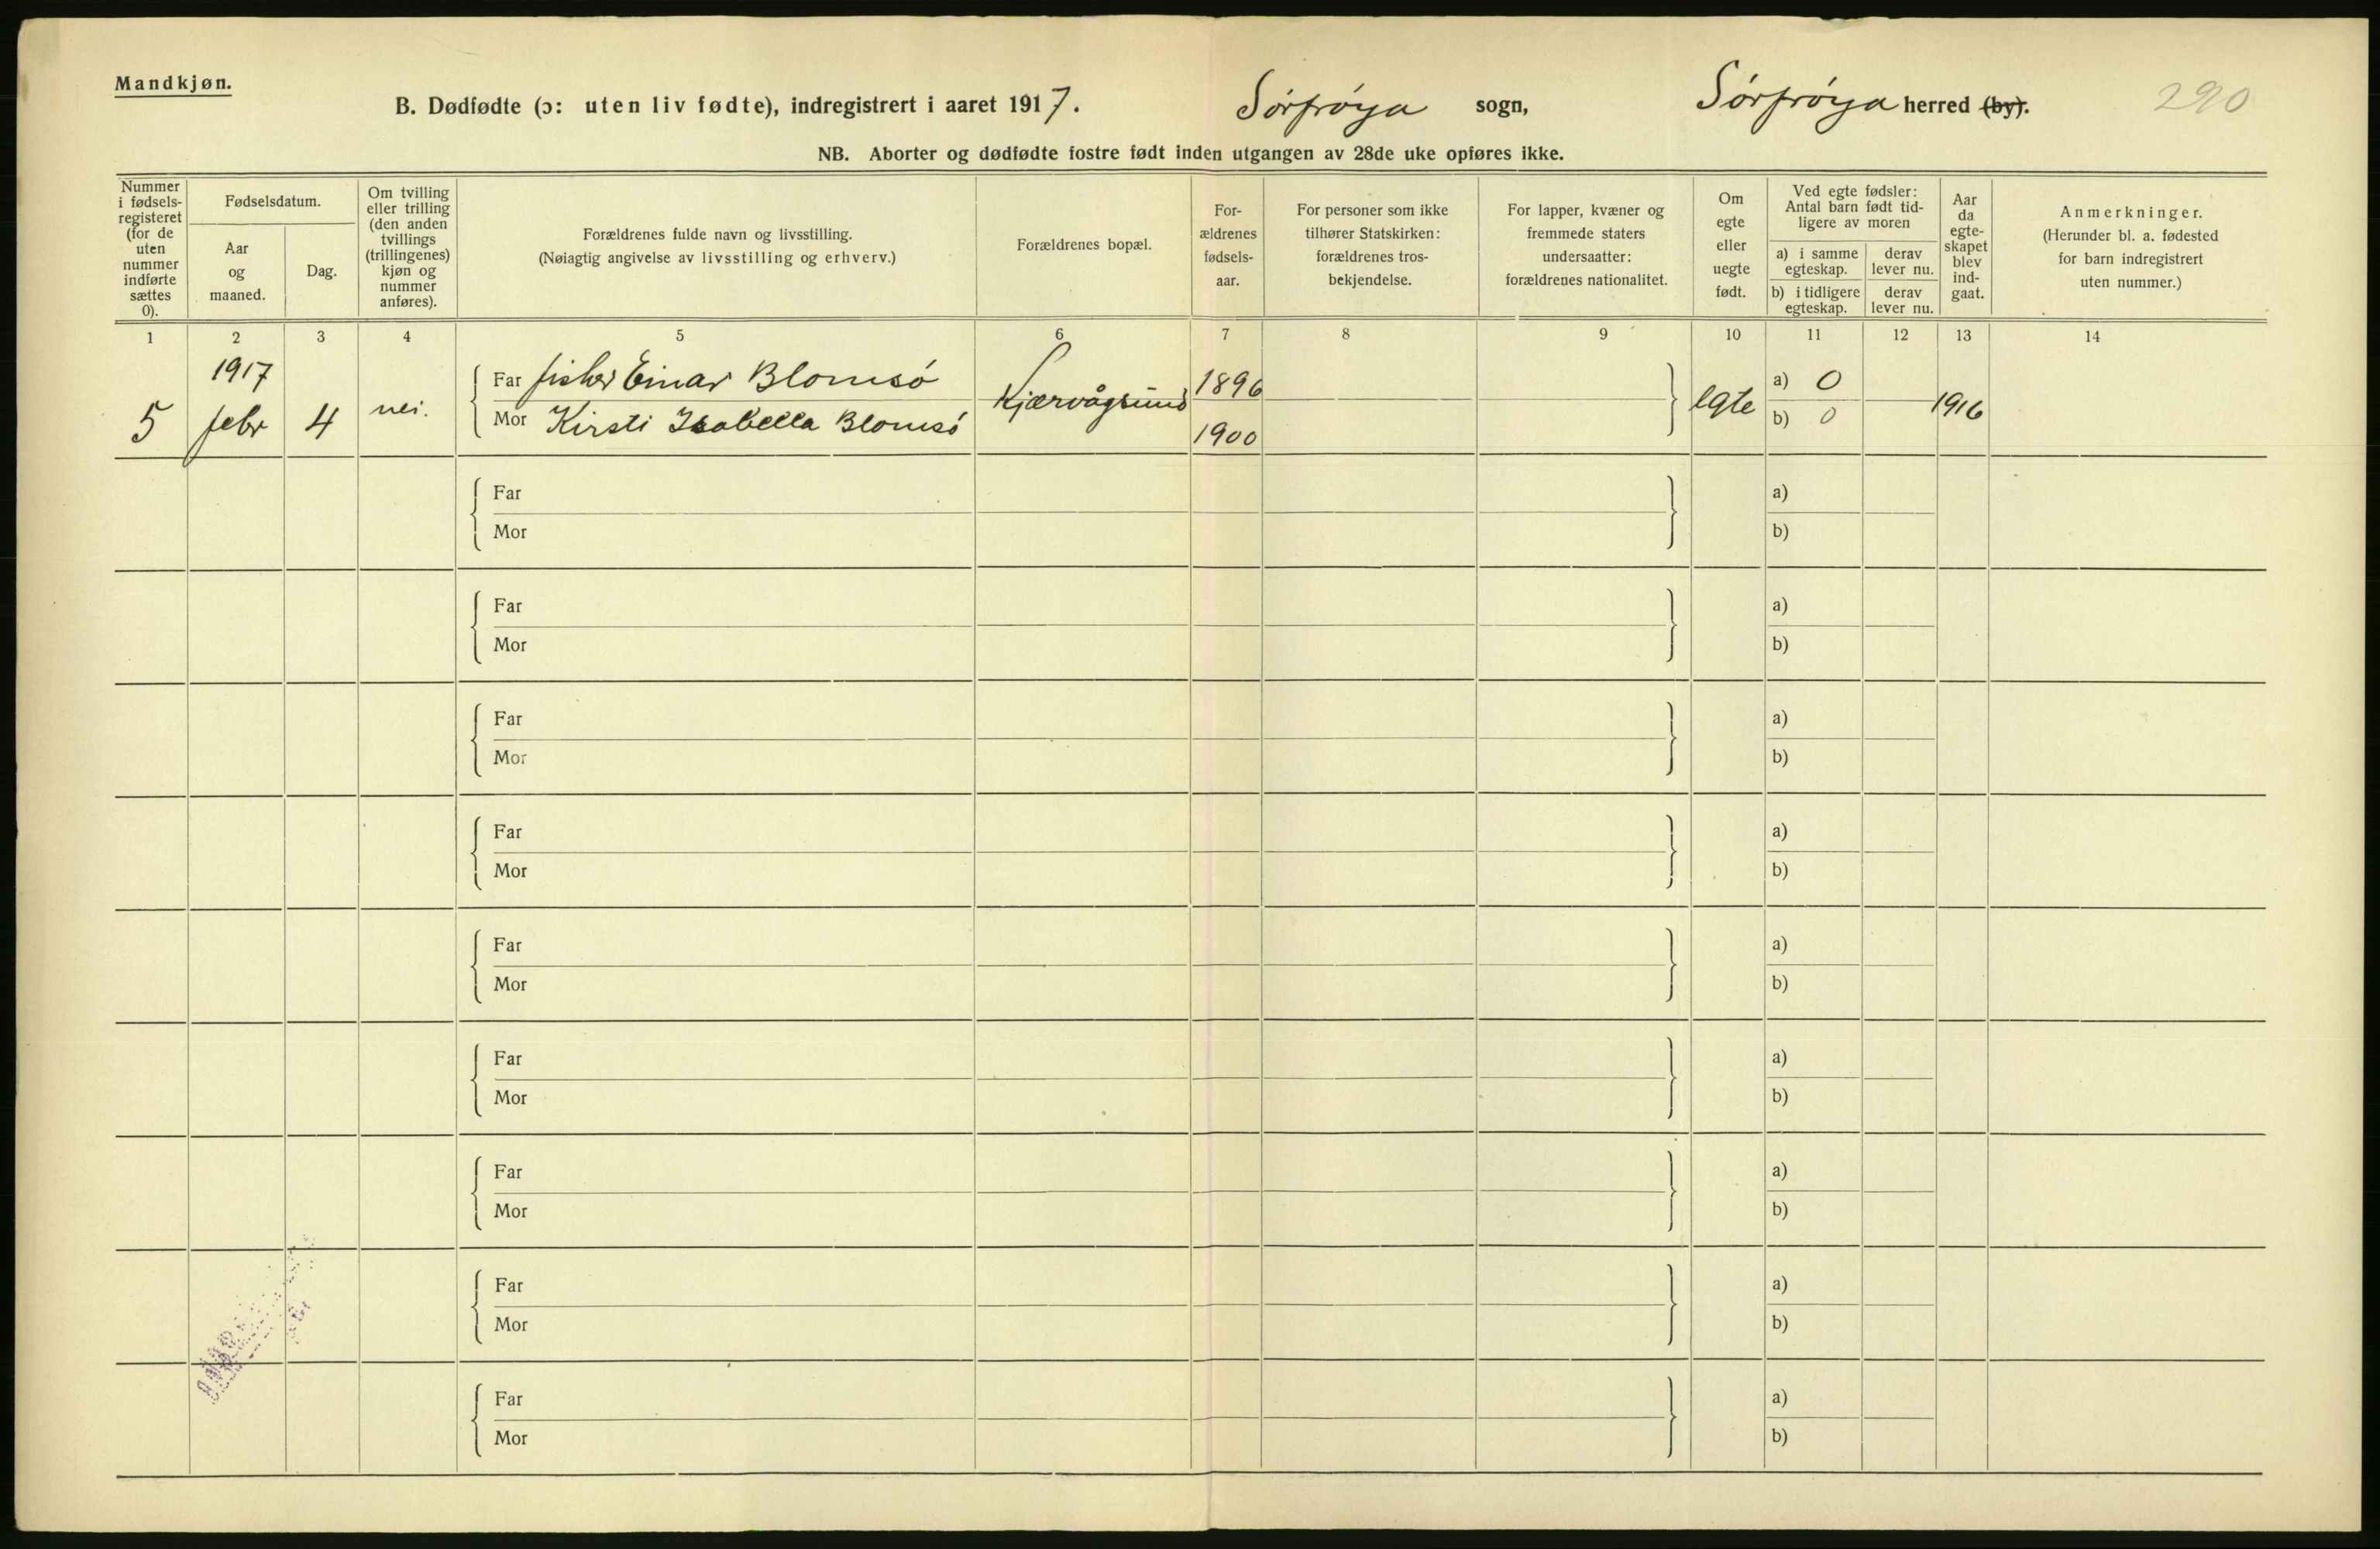 Mandkjøn.
B. Dødfødte (ɔ: uten liv fødte), indregistrert i aaret 1917. Sórfróya sogn, Sórfróya herred (by). 290
NB. Aborter og dødfødte fostre født inden utgangen av 28de uke opføres ikke.
Nummer
i fødsels-
registeret
(for de
uten
nummer
indførte
sættes
0).
Fødselsdatum.
Aar
og
maaned.
Dag.
Om tvilling
eller trilling
(den anden
tvillings
(trillingenes)
kjøn og
nummer
anføres).
Forældrenes fulde navn og livsstilling.
(Nøiagtig angivelse av livsstilling og erhverv.)
Forældrenes bopæl.
For-
ældrenes
fødsels-
aar.
For personer som ikke
tilhører Statskirken:
forældrenes tros-
bekjendelse.
For lapper, kvæner og
fremmede staters
undersaatter:
forældrenes nationalitet.
Om
egte
eller
uegte
født.
Ved egte fødsler:
Antal barn født tid-
ligere av moren
a) i samme
egteskap.
derav
lever nu.
b) i tidligere
egteskap.
derav
lever nu.
Aar
da
egte-
skapet
blev
ind-
gaat.
Anmerkninger.
(Herunder bl. a. fødested
for barn indregistrert
uten nummer.)
1 2 3 4 5 6 7 8 9 10 11 12 13 14
1917
5 febr 4 nei.
Far fisker Einar Blomsó
Mor Kirsti Isabella Blomsó
Kjærvågsund
1896
1900
egte
a) 0
b) 0
1916
Far a)
Mor b)
Far a)
Mor b)
Far a)
Mor b)
Far a)
Mor b)
Far a)
Mor b)
Far a)
Mor b)
Far a)
Mor b)
Far a)
Mor b)
Far a)
Mor b)